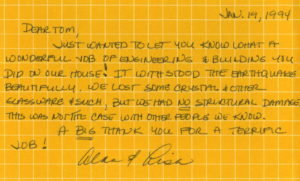 JAN. 19, 1994
DEAR TOM,
JUST WANTED TO LET YOU KNOW WHAT A
WONDERFUL JOB OF ENGINEERING & BUILDING YOU
DID ON OUR HOUSE! IT WITHSTOOD THE EARTHQUAKE
BEAUTIFULLY. WE LOST SOME CRYSTAL & OTHER
GLASSWARE & SUCH, BUT WE HAD NO STRUCTURAL DAMAGE
THIS WAS NOT THE CASE WITH OTHER PEOPLE WE KNOW.
A BIG THANK YOU FOR A TERRIFIC
JOB!